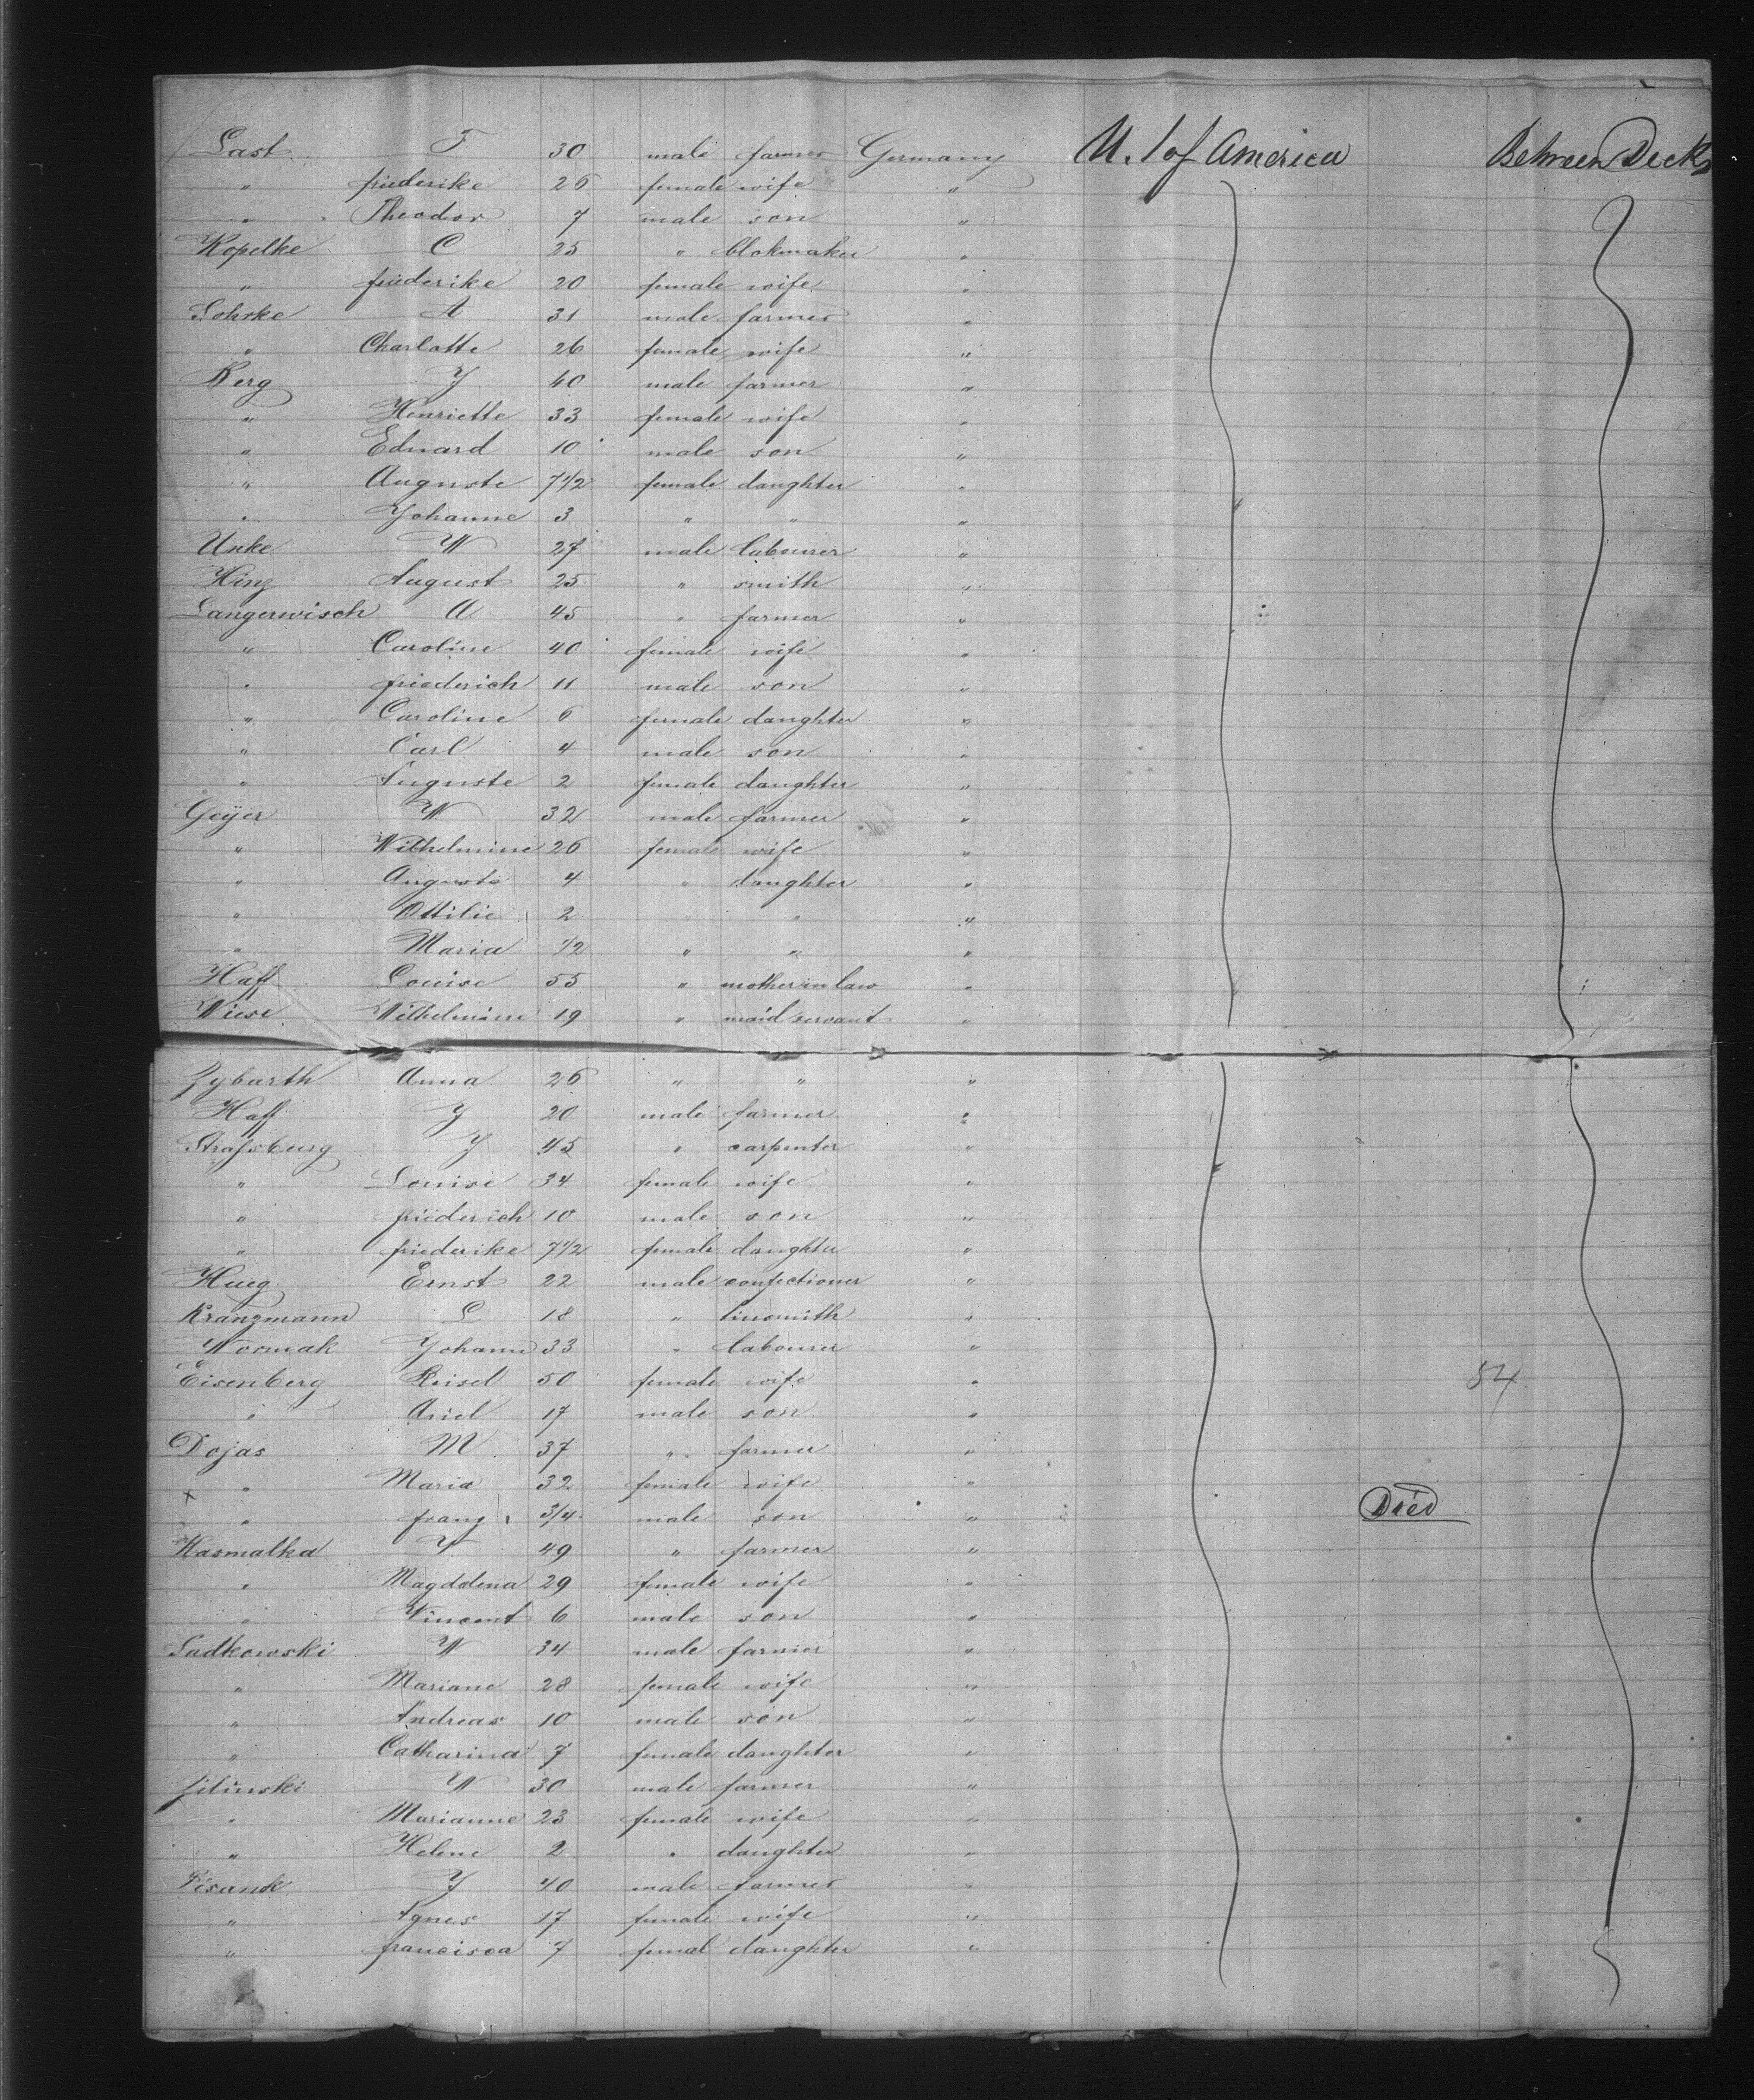 Last F 30 male farmer Germany U. S of America Between Decks
" friederike 26 female wife "
" Theodor 7 male son "
Kopelke C 25 " blokmaker "
" friederike 20 female wife "
Lohrke A 31 male farmer "
" Charlotte 26 female wife "
Berg J 40 male farmer "
" Henriette 33 female wife "
" Eduard 10 male son "
" Auguste 7 1/2 female daughter "
" Johanne 3 " " "
Unke W 27 male labourer "
Hinz August 25 " smith "
Langerwisch A 45 " farmer "
" Caroline 40 female wife "
" friederich 11 male son "
" Caroline 6 female daughter "
" Carl 4 male son "
" Auguste 2 female daughter "
Geÿer W 32 male farmer "
" Wilhelmine 26 female wife "
" Auguste 4 " daughter "
" Ottilie 2 " " "
" Maria 1/2 " " "
Haff Louise 55 " mother in law "
Wiese Wilhelmine 19 " maid servant "
Zybarth Anna 26 " " "
Haff J 20 male farmer "
Strafsburg J 45 " carpenter "
" Louise 34 female wife "
" friederich 10 male son "
" friederike 7 1/2 female daughter "
Hueg Ernst 22 male confectioner "
Kranzmann L 18 " tinsmith "
Wormak Johann 33 " labourer "
Eisenberg 50 female wife " 54
" Ariel 17 male son "
Dojas M 37 " farmer "
x " Maria 32 female wife "
" franz 3/4 male son " Died
Kasmalka 49 " farmer "
" Magdalena 29 female wife "
" Vincent 6 male son "
Sadkowski W 34 male farmer "
" Mariane 28 female wife "
" Andreas 10 male son "
" Catharina 7 female daughter "
Zilinski W 30 male farmer "
" Marianne 23 female wife "
" Helene 2 " daughter "
Pisank J 40 male farmer "
" Agnes 17 female wife "
" francisca 7 femal daughter "